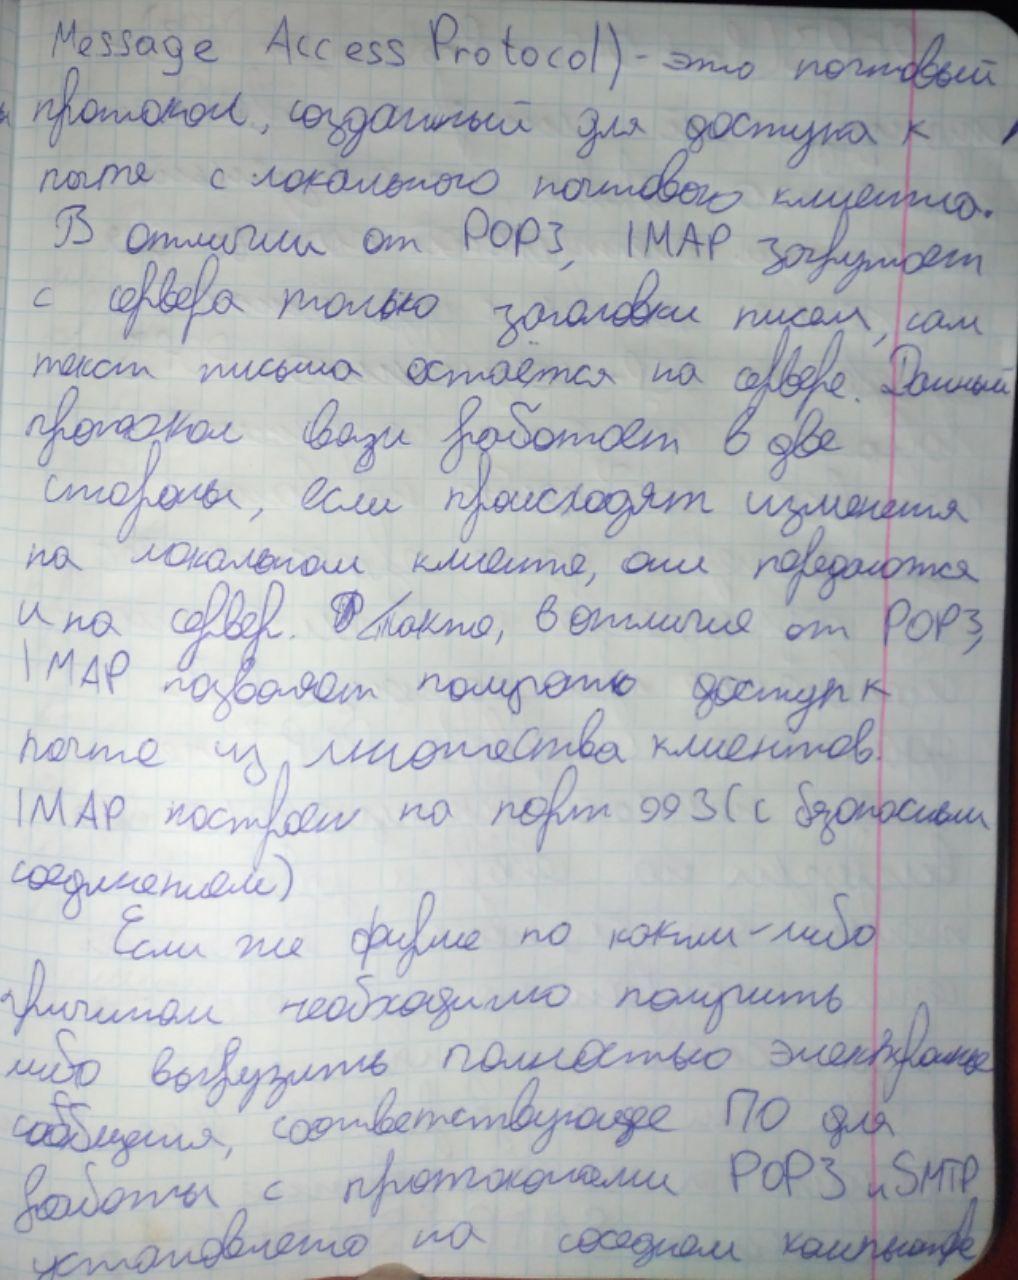 Message Access Protocol) - это почтовый
протокол, созданный для доступа к
почте с локального почтового клиента.
В отличии от POP3, IMAP загружает
с сервера только заголовки писем, сам
текст письма остаётся на сервере. Данный
протокол связи работает в две
стороны, если происходят изменения
на локальном клиенте, они передаются
и на сервер. Также, в отличие от POP3,
IMAP позволяет получать доступ к
почте из множества клиентов.
IMAP настроен на порт 993 (с безопасным
соединением)
Если же фирме по каким-либо
причинам необходимо получить
либо выгрузить полностью электронные
сообщения, соответствующее ПО для
работы с протоколами POP3 и SMTP
установлено на соседнем компьютере